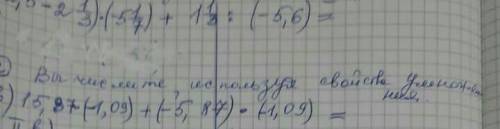 ,5 - 2 1/3) · (-5 1/7) + 1 1/8 : (-5,6) =
Вычислите, используя свойства умноже-
ния.
) 15,87 · (-1,09) + (-5,87) · (-1,09) =